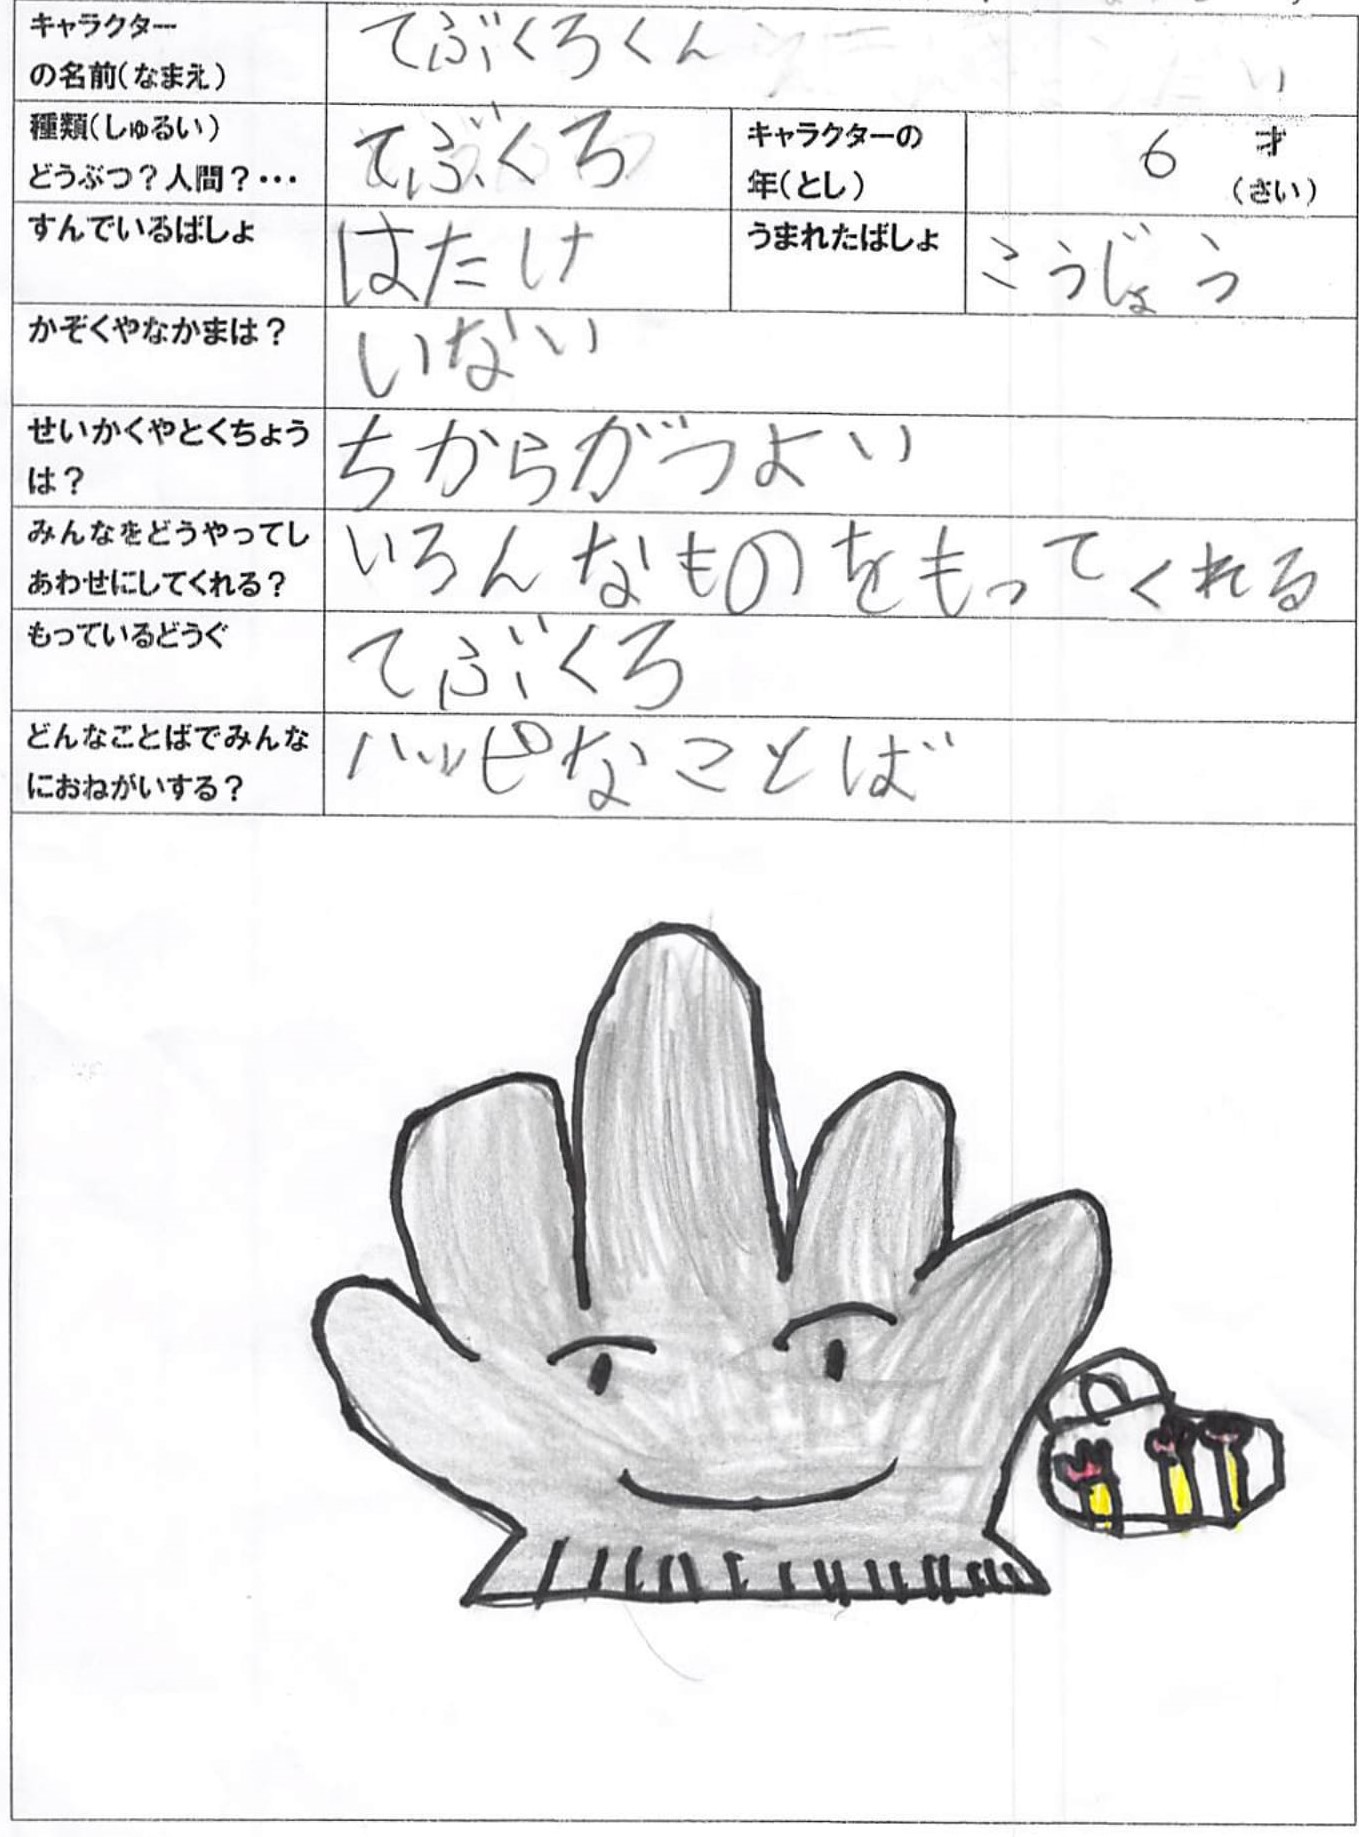 キャラクター
の名前(なまえ)
てぶくろくん
種類(しゅるい)
どうぶつ?人間?・・・
てぶくろ
キャラクターの
年(とし)
6 才
(さい)
すんでいるばしょ
はたけ
うまれたばしょ
こうじょう
かぞくやなかまは?
いない
せいかくやとくちょう
は?
ちからがつよい
みんなをどうやってし
あわせにしてくれる?
いろんなものをもってくれる
もっているどうぐ
てぶくろ
どんなことばでみんな
におねがいする?
ハッピなことば